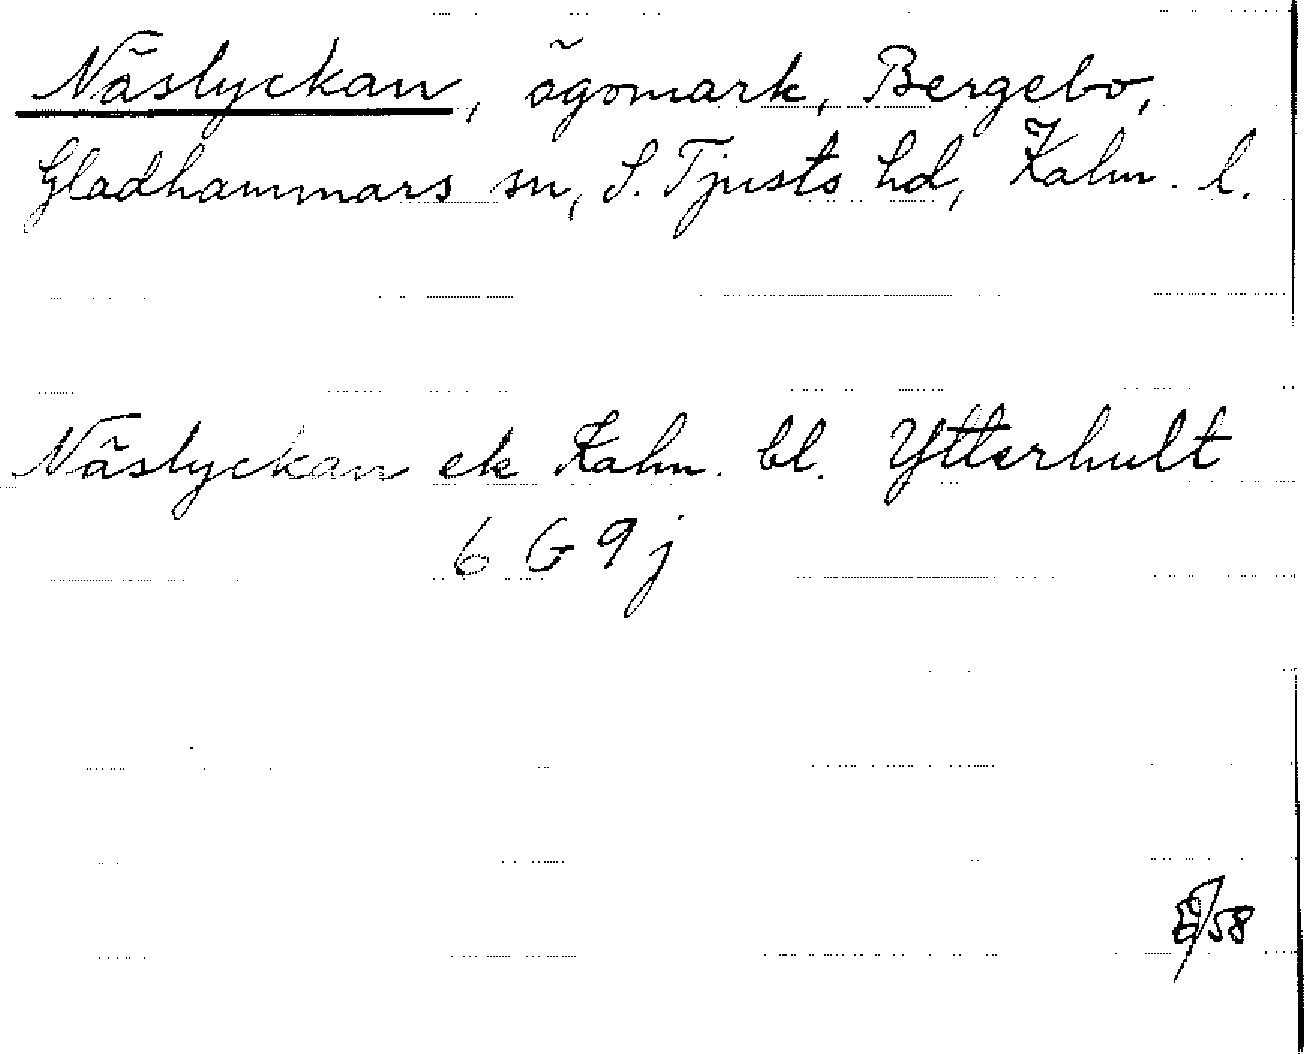 Näslyckan, ägomark, Bergebo,
Gladhammars sn, S. Tjusts hd, Kalm. l.
Näslyckan ek Kalm. bl. Ytterhult
6 G 9 j
/58